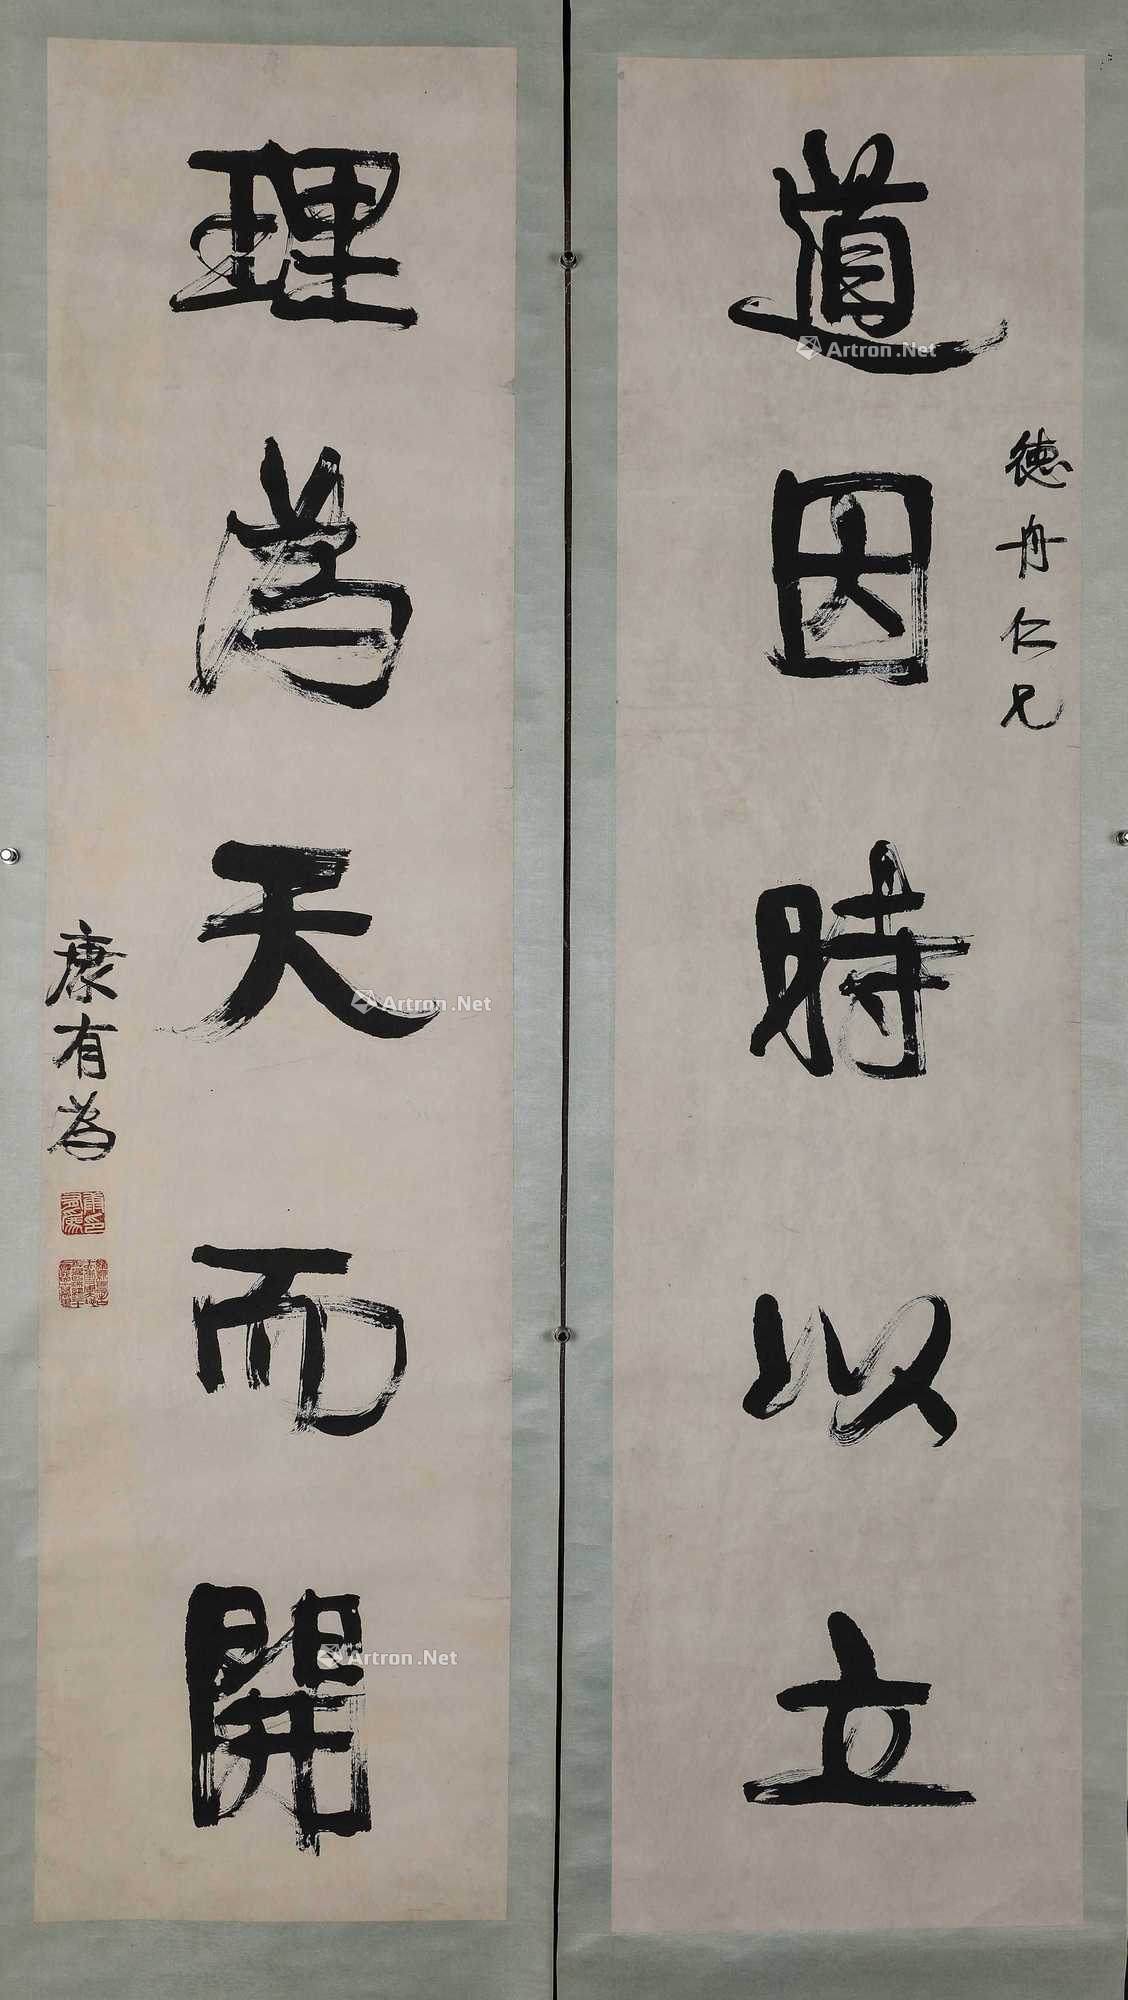 道因時以立
德舟仁兄
理為天而開
康有為
Artron.Net
Artron.Net
Artron.Net